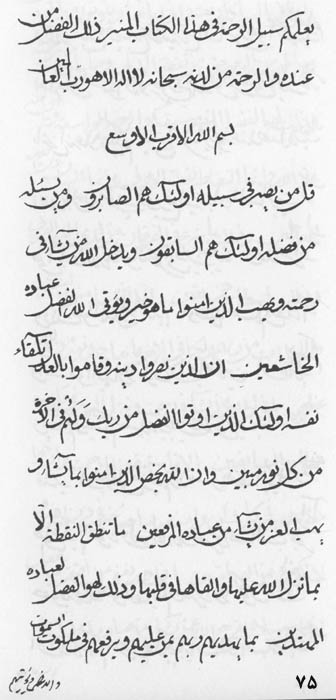 يعلمكم سبيل الرحمة فى هذا الكتاب المنير ذلك الفضل من
عنده والرحمة من لدنه سبحانه لا اله الا هو رب العالمين
بسم الله الاقرب الاوسع
قل من يصبر فى سبيله اولئك هم الصابرون ومن يسئله
من فضله اولئك هم السابقون ويدخل الله من يشاء فى
رحمته ويهب الذين امنوا ما هو خير ويؤتى الله الفضل عباده
الخاشعين ان الذين نصروا دينه وقاموا بالعدل تلقاء
نفسه اولئك الذين اوتوا الفضل من ربك ولهم فى الآخرة
من كل نور مبين وان الله يخص الذين امنوا بما يشاء و
يهب العز من يشاء من عباده المرفعين ما تنطق النقطة الا
بما نزل الله عليها والقاها فى قلبها وذلك لهو الفضل لعباده
المهتدين بما يهديهم ربهم بمن عليهم ويرفعهم فى ملكوت السموات
٧٥